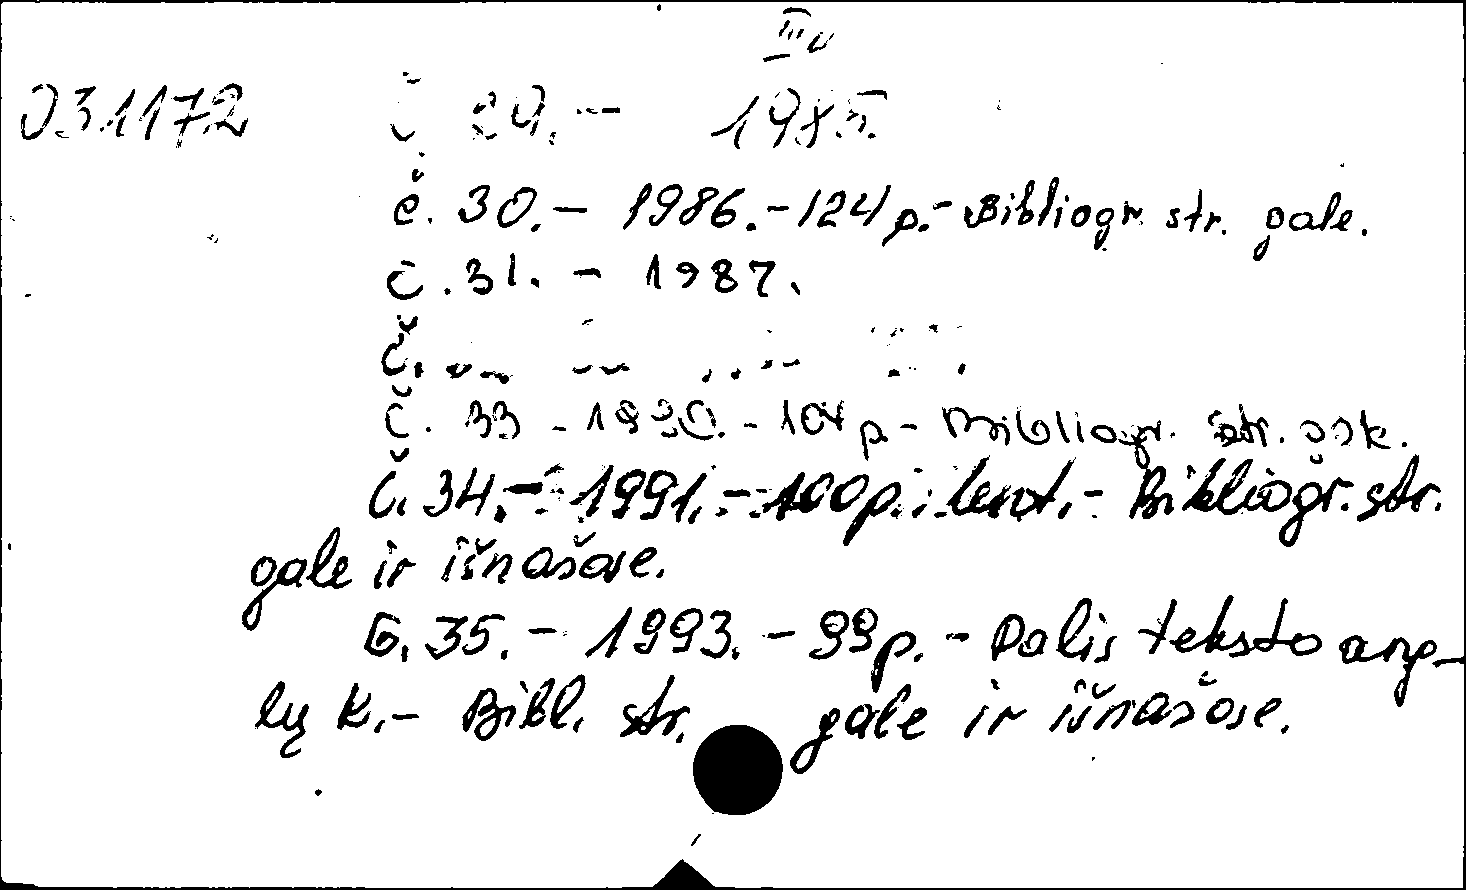 III
031172 Č 29. - 1985.
č. 30. - 1986. - 124 p. - Bibliogr. str. gale.
Č. 31. - 1987.
Č.
Č. 33 - 1990. - 104 p - Bibliogr. str.
Č. 34. - 1991. - 100 p.: lent. - Bibliogr. str.
gale ir išnašose.
35. - 1993. - 99 p. - Dalis teksto ang-
lų k. - Bibl. str. gale ir išnašose.